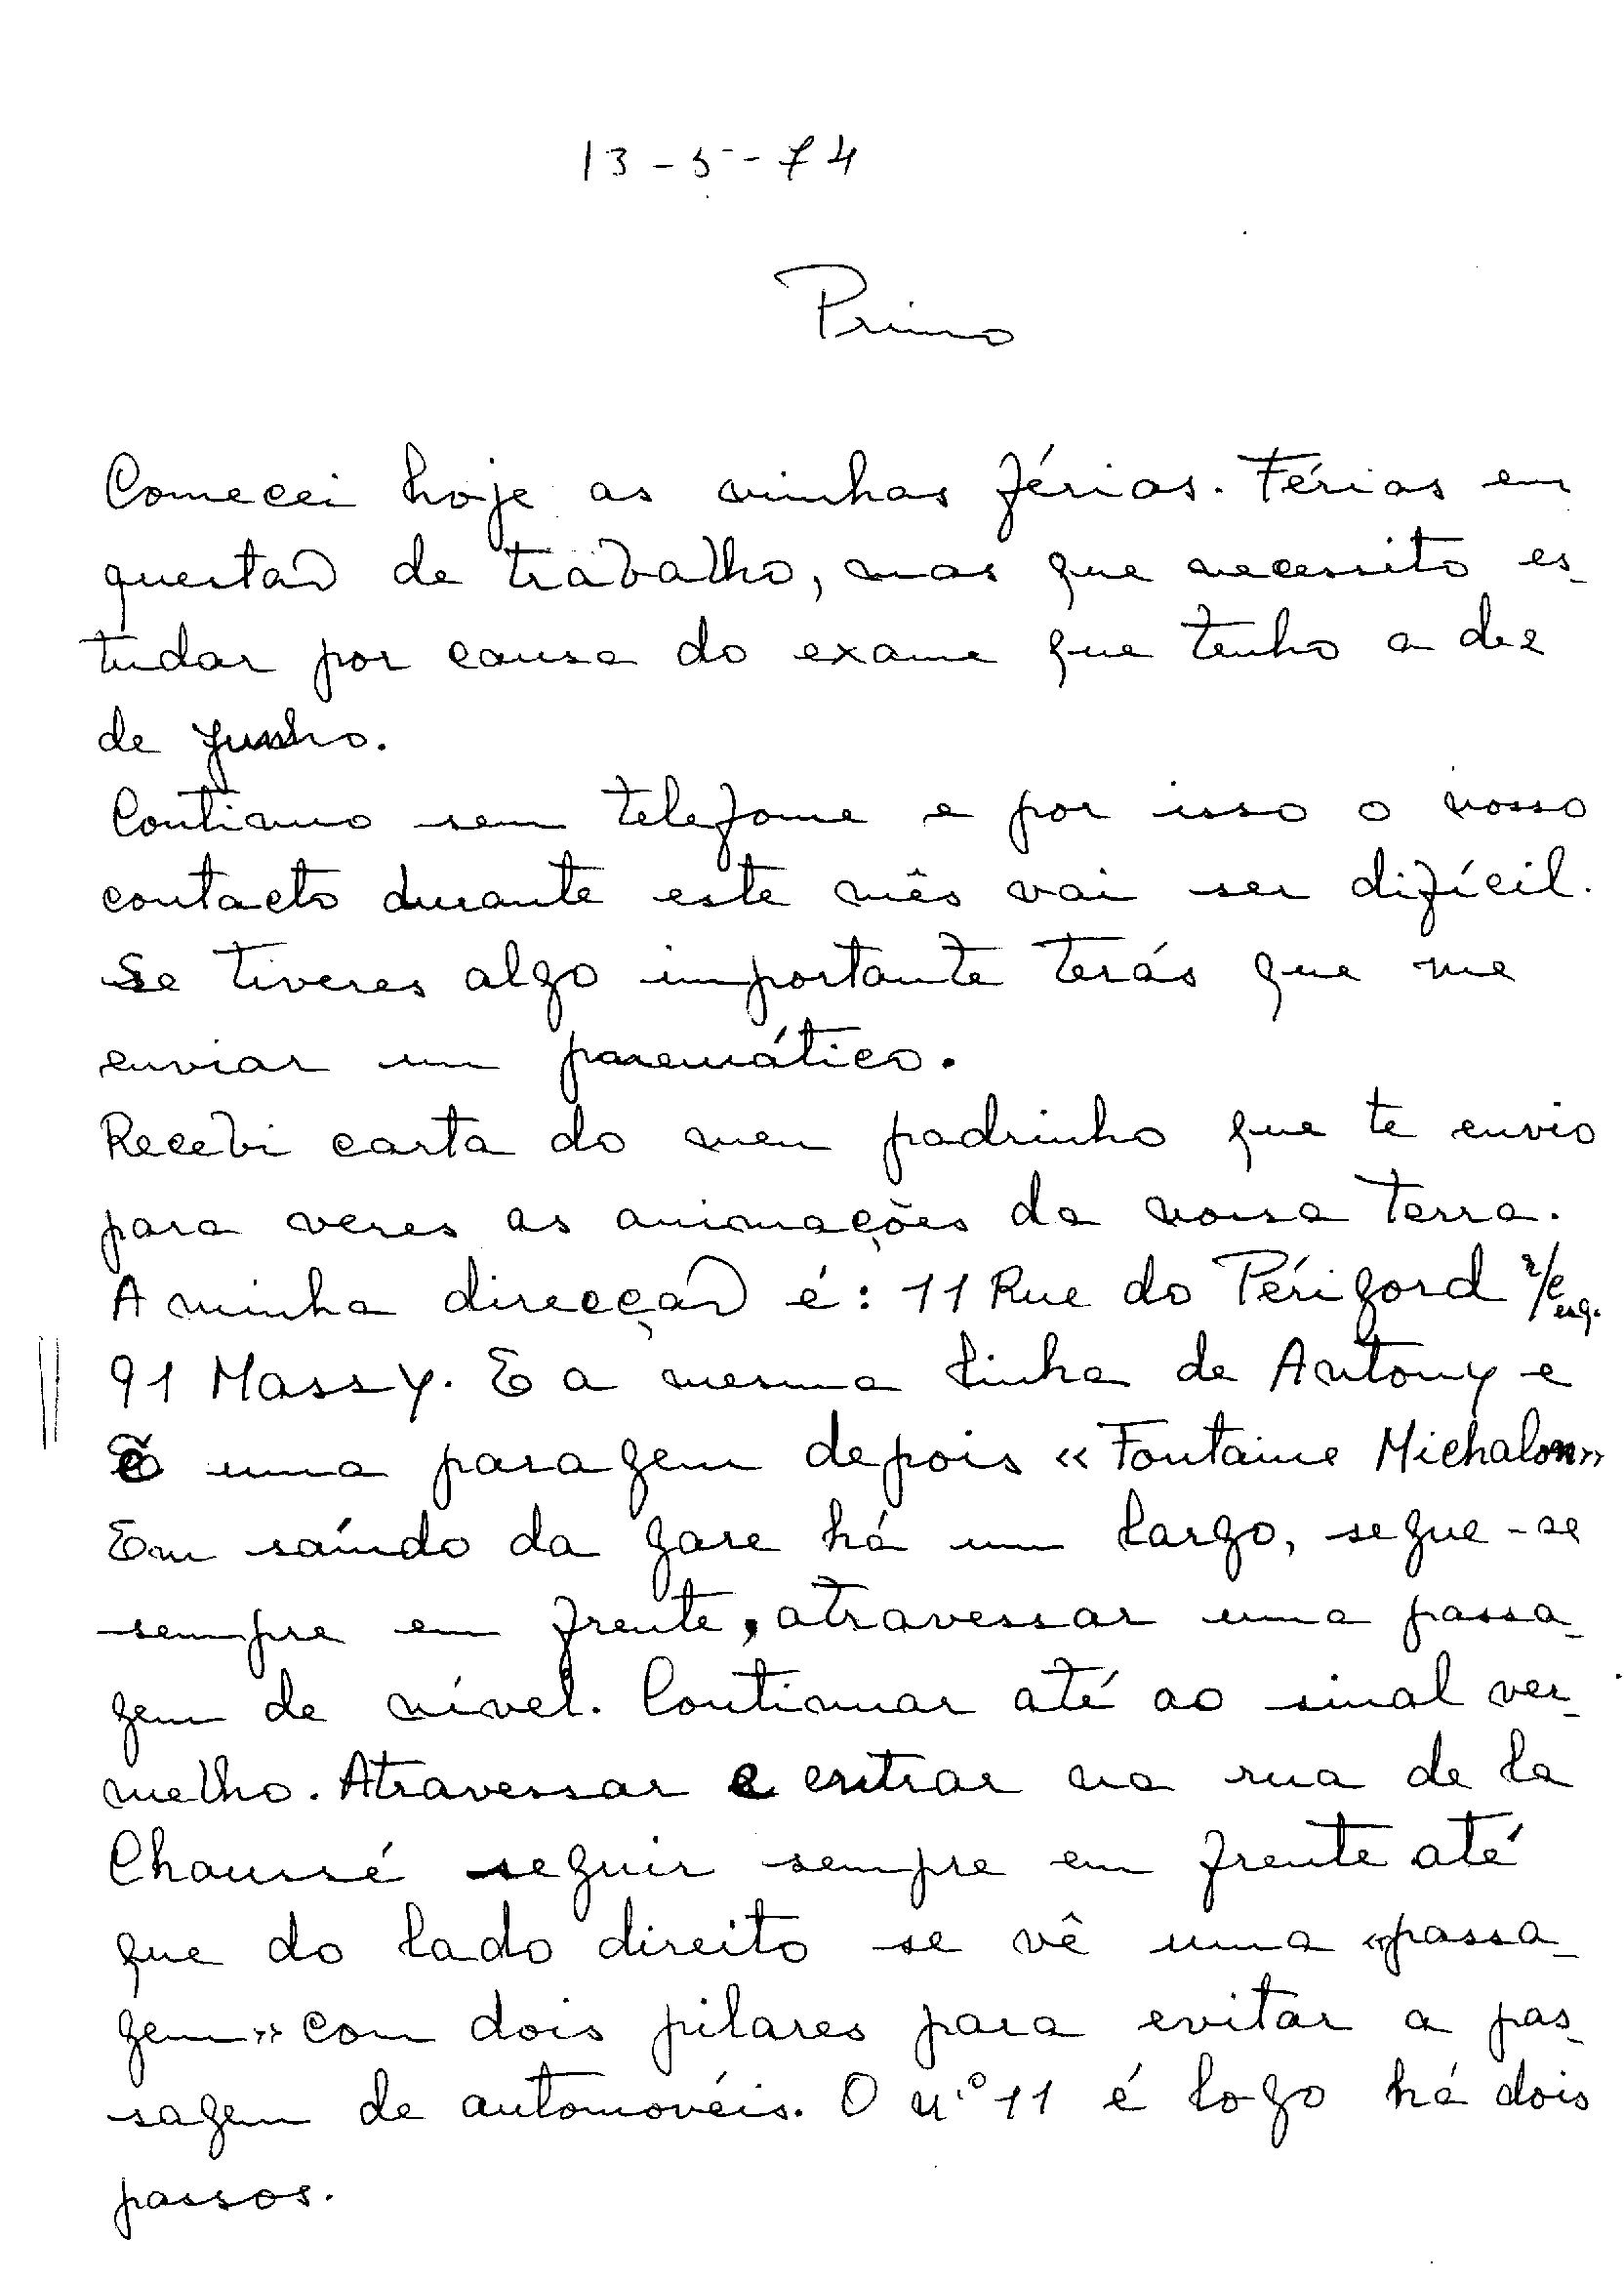 13-5-74
Primo
Comecei hoje as minhas férias. Férias em
questão de trabalho, mas que necessito es-
tudar por causa do exame que tenho a dez
de Junho.
Continuo sem telefone e por isso o nosso
contacto durante este mês vai ser difícil.
Se tiveres algo importante terás que me
enviar um pneumático.
Recebi carta do meu padrinho que te envio
para veres as animações da nossa terra.
A minha direcção é: 11 Rue do Périgord r/c esq.
91 Massy. E a mesma linha de Antony e
é uma paragem depois «Fontaine Michalon»
Em saíndo da gare há um largo, segue-se
sempre em frente, atravessar uma passa-
gem de nível. Continuar até ao sinal ver-
melho. Atravessar e entrar na rua de la
Chaussé seguir sempre em frente até
que do lado direito se vê uma «passa-
gem» com dois pilares para evitar a pas-
sagem de automovéis. O n.º 11 é logo há dois
passos.